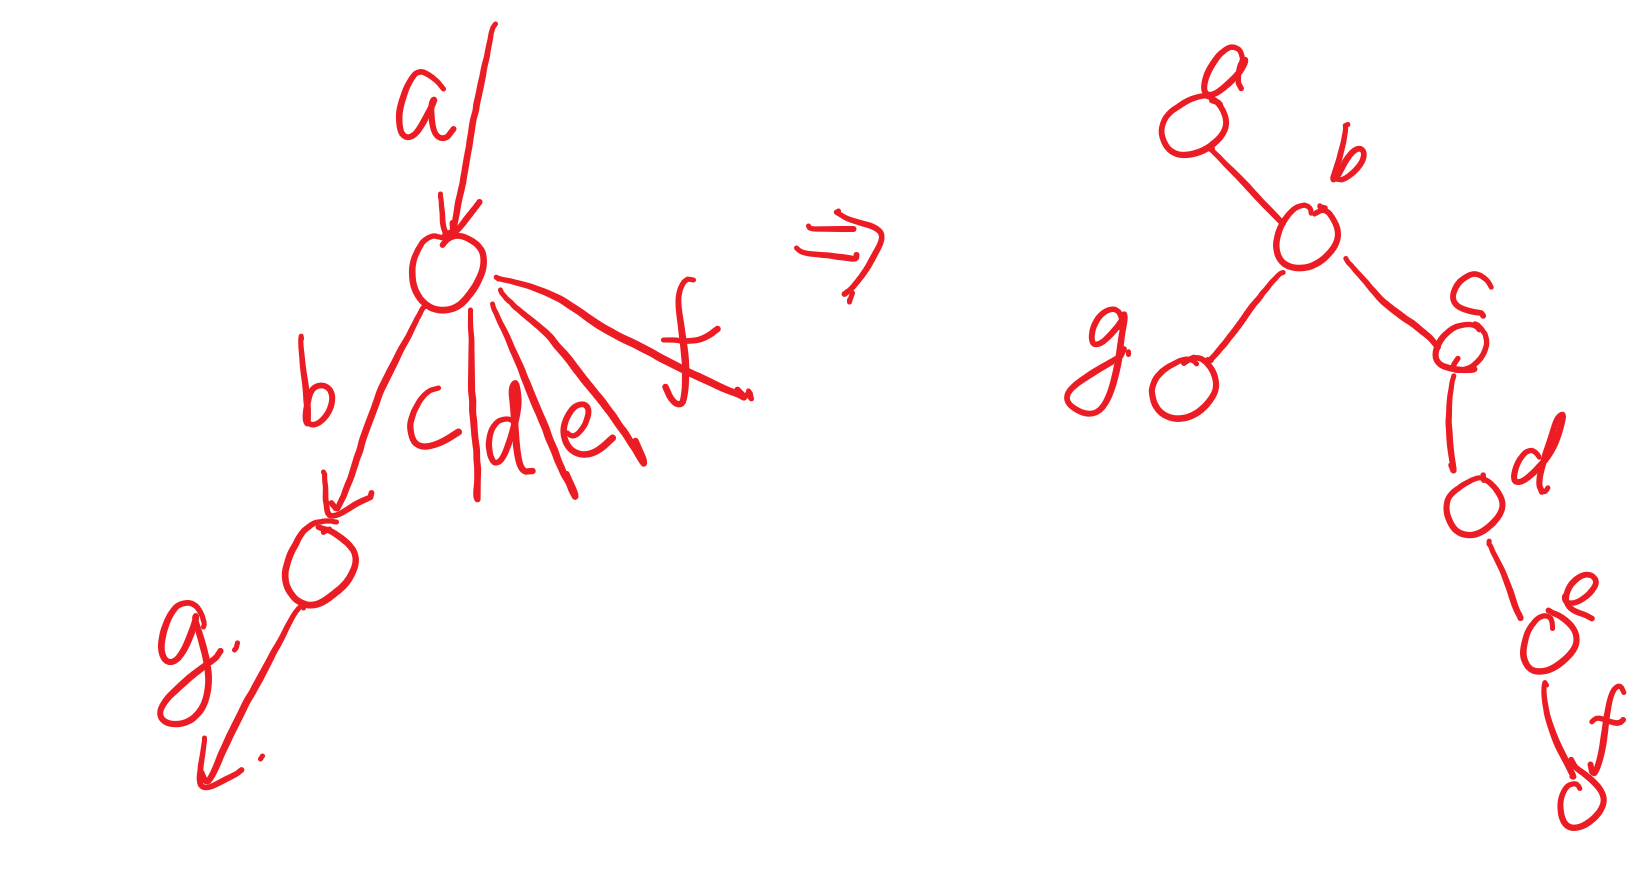 a
b
c
d
e
f
g
⇒
a
b
c
g
d
e
f